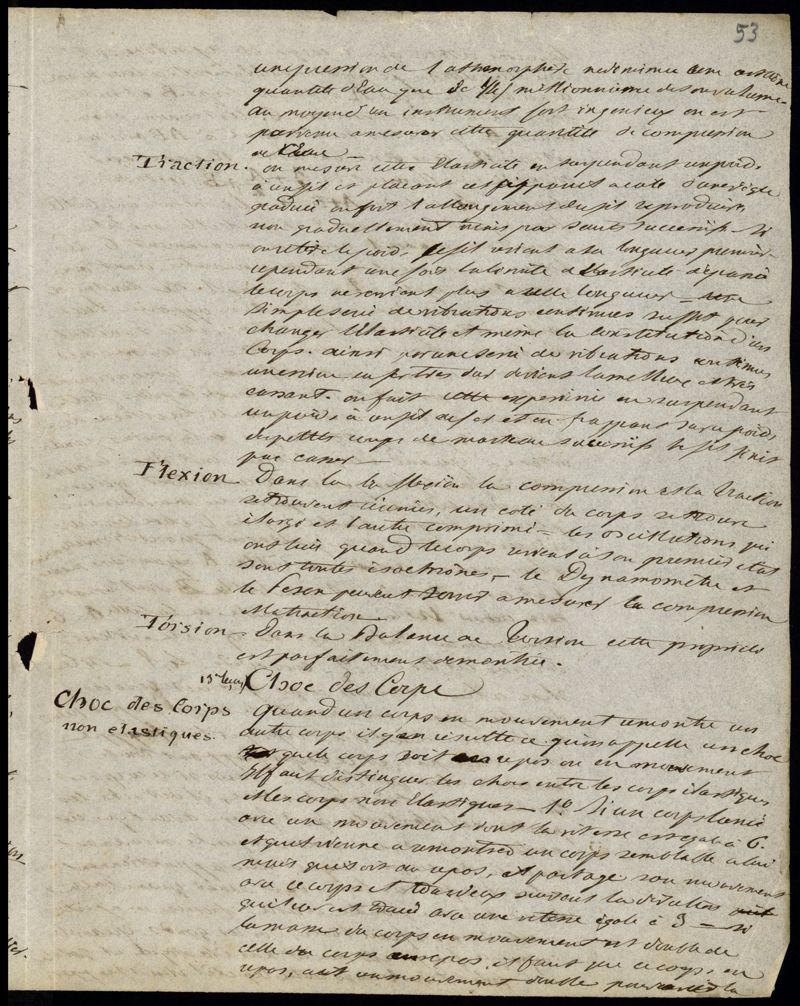 53
une pression de l'atmosphère ne diminue une certaine
quantité d'Eau que de millionnième de son volume
au moyen d'un instrument fort ingenieux on est
parvenu a mesurer cette quantité de compression
de l'Eau
Traction. on mesure cette Elasticité en suspendant un poids
à un fil et placant cet appareil a coté d'une règle
graduée on voit l'allongement du fil se produire
non graduellement mais par sauts successifs - Si
on retire le poids, le fil revient a sa longueur première
cependant une fois la limite d'Elasticité dépassée
le corps ne revient plus a cette longueur - une
simple serie de vibrations continues suffit pour
changer l'Elasticité et meme la constitution d'un
Corps. ainsi par une serie de vibrations continues
un essieu en fer très dur devient lamelleux et très
cassant. on fait cette experience en suspendant
un poids à un fil de fer et en frappant sur ce poids
des petits coups de marteau successifs le fil finit
par casser -
Flexion - Dans la flexion la compression et la Traction
se trouvent réunies, un coté du corps se trouve
élargi et l'autre comprimé - les oscillations qui
ont lieu quand le corps revient à son premier état
sont toutes isochrônes, - le Dynamomètre et
le Peson peuvent servir a mesurer la compression
et la traction
Torsion - Dans la Balance de Torsion cette propriété
est parfaitement démontrée.
15e leçon Choc des Corps
Choc des Corps
non elastiques.
quand un corps en mouvement rencontre un
autre corps il y en résulte ce qu'on appelle un choc
que le corps soit en repos ou en mouvement
Il faut distinguer les chocs entre les corps élastiques
et les corps non Elastiques - 1º Si un corps lancé
avec un mouvement dont la vitesse est egale à 6.
et qui vienne a rencontrer un corps semblable a lui
mais qui soit au repos, il partage son mouvement
avec ce corps et tous deux suivant la direction
qu'il avait avec une vitesse égale à 3 - si
la masse du corps en mouvement est double de
celle du corps en repos, il faut que ce corps, en
repos, ait un mouvement double pour la